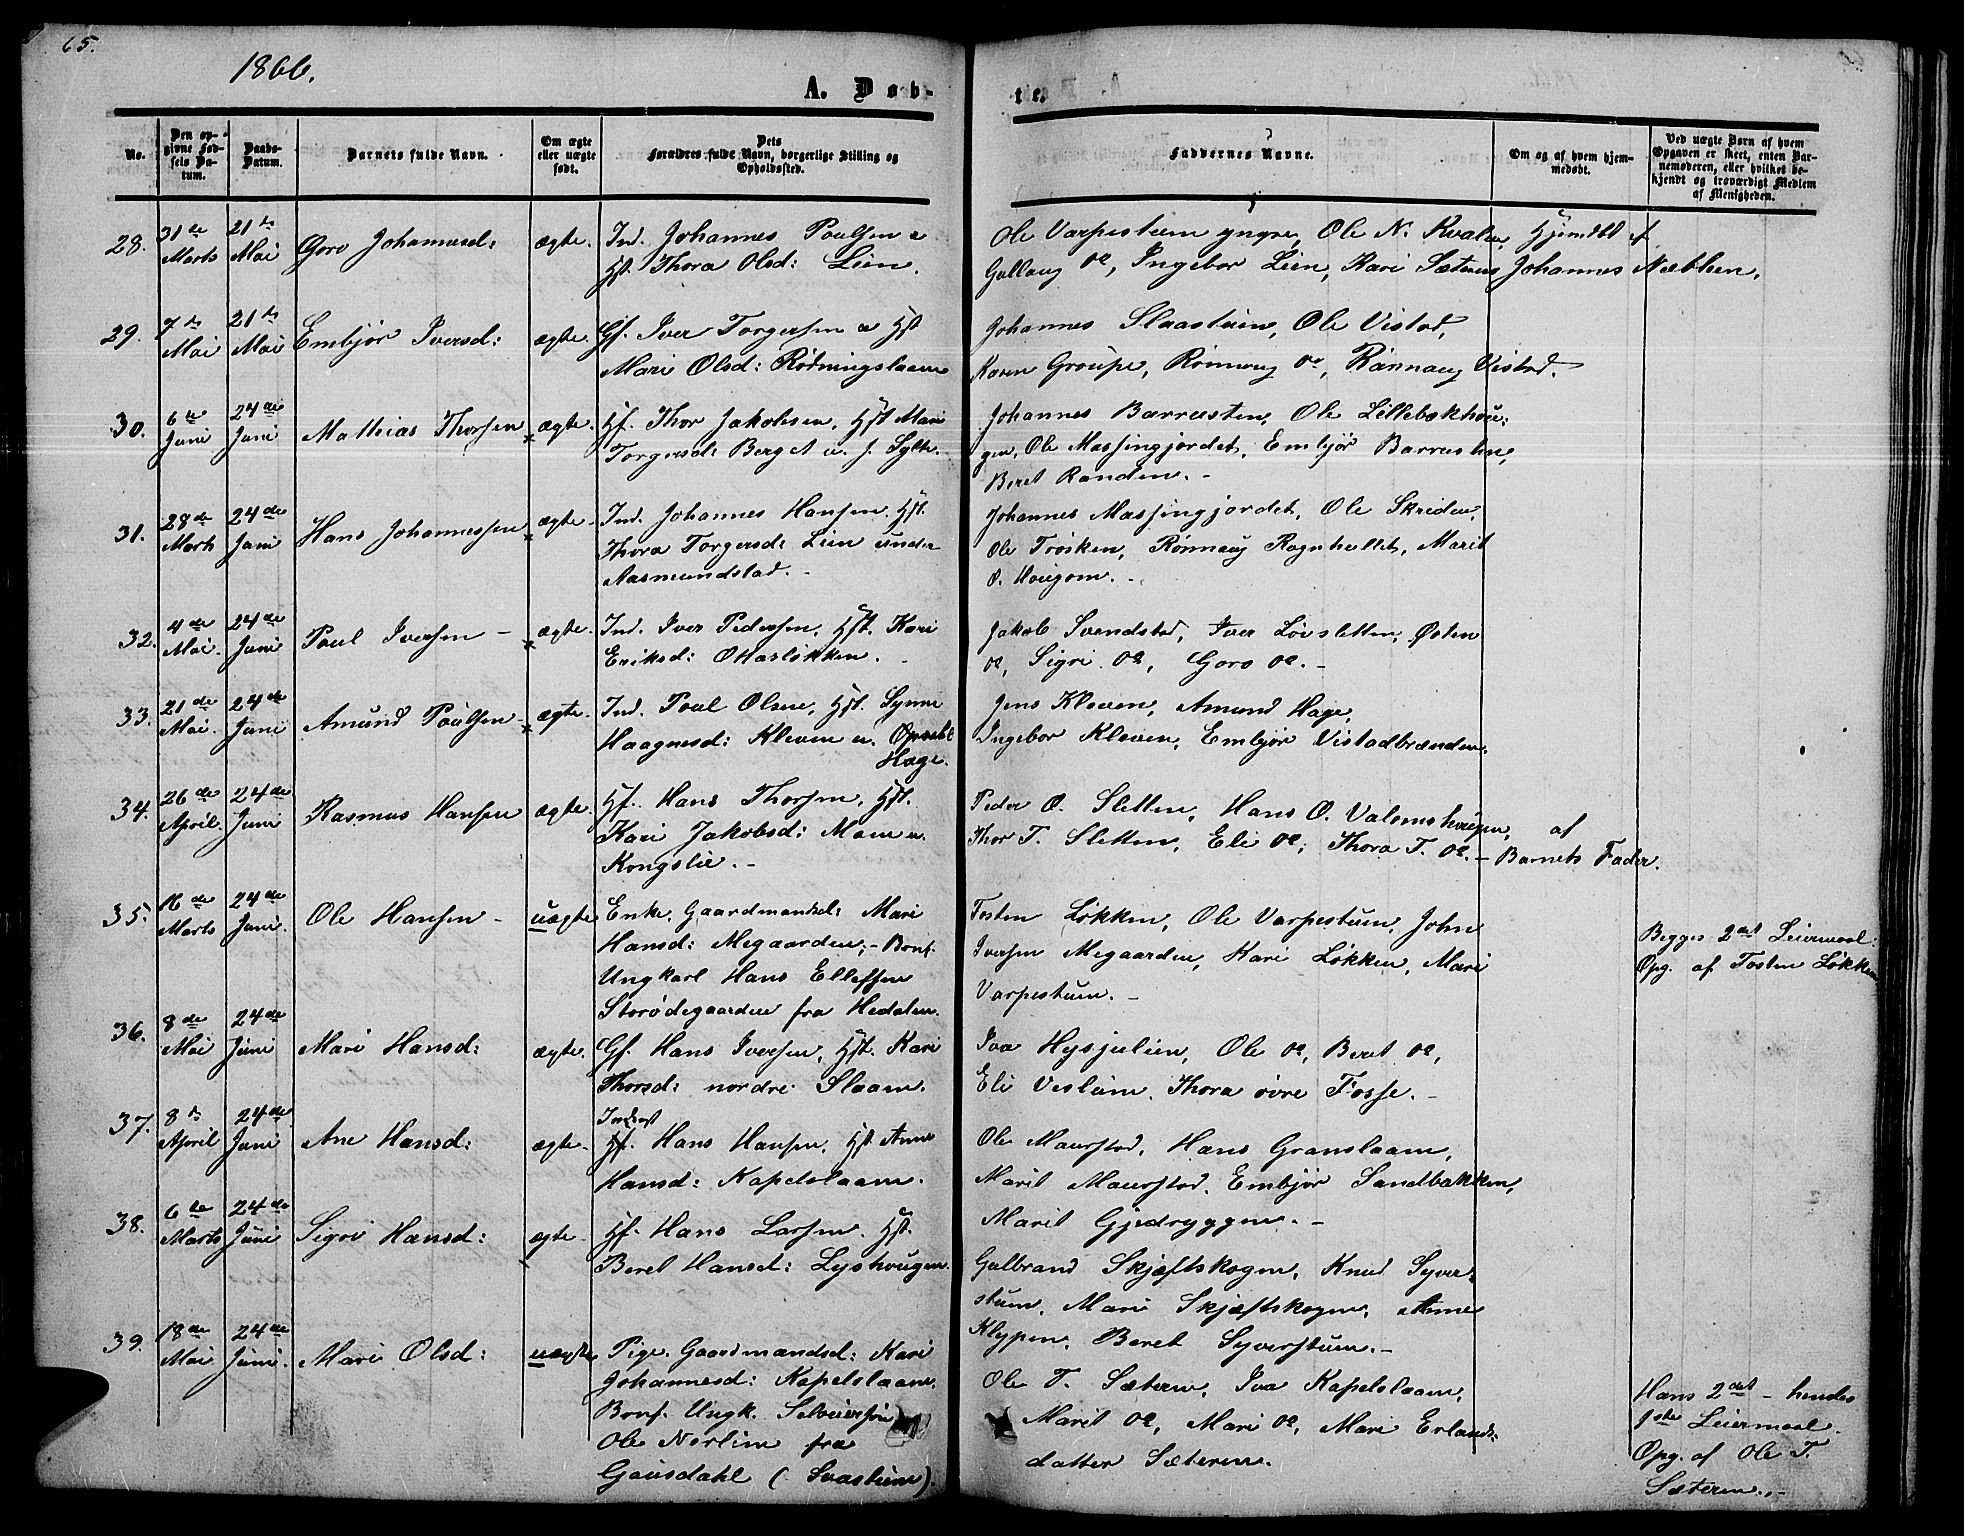 65.
1866.
A. Døb-
te.
No.
Den op-
givne Fød-
sels Da-
tum.
Daabs-
Datum.
Barnets fulde Navn.
Om ægte
eller uægte
født.
Dets
Forældres fulde Navn, borgerlige Stilling og
Opholdssted.
Faddernes Navne.
Om og af hvem hjem-
medøbt.
Ved uægte Børn af hvem
Opgaven er skeet, enten Bar-
nemoderen, eller hvilket be-
kjendt og troværdigt Medlem
af Menigheden.
28. 31te Marts 21de Mai Goro Johannesd: ægte. Ind. Johannes Poulsen &
Hst. Thora Olsd: Lien.
Ole Varpestuen yngre, Ole N. Kvalen
Gullaug do, Ingebor Lien, Kari Sæteren
Hjemdbt af
Johannes Næblien.
29. 7de Mai 21de Mai Embjør Iversd: ægte. Gf. Iver Torgersen & Hst
Mari Olsd: Rødningslaam
Johannes Slaastuen, Ole Vistad,
Karen Groupe, Rønnaug do, Rønnaug Vistad.
30. 6te Juni 24de Juni Mathias Thorsen ægte. Hf. Thor Jakobsen, Hst Mari
Torgersd: Berget u. s. Sylte.
Johannes Barrusten, Ole Lillebækhou-
gen, Ole Massingjordet, Embjør Barrusten,
Beret Randen. -
31. 28de Marts 24de Juni Hans Johannessen ægte. Ind. Johannes Hansen. Hst.
Thora Torgersd: Lien under
Aasmundstad. -
Johannes Massingjordet, Ole Skriden,
Ole Trøsken, Rønnaug Ragnhullet, Marit
O. Hougom. -
32. 4de Mai. 24de Juni Poul Iversen - ægte. Ind. Iver Pedersen, Hst. Kari
Eriksd: Ottarløkken. -
Jakob Svendstad, Iver Løvsletten, Østen
do, Sigri do, Goro do. -
33. 21de Mai. 24de Juni Amund Poulsen - ægte. Ind. Poul Olsen, Hst. Synne
Haagnesd: Kleven u.
Hage.
Jens Kleven, Amund Hage,
Ingebor Kleven, Embjør Vistadbrænden.
34. 26de April. 24de Juni Rasmus Hansen ægte. Hf. Hans Thorsen, Hst.
Kari Jakobsd: Moen u.
Kongslie. -
Peder O. Sletten, Hans O. Valemshougen,
Thor T. Sletten, Eli do, Thora T. do. -
af
Barnets Fader.
35. 16de Marts 24de Juni. Ole Hansen - uægte Enke. Gaardmandsd: Mari
Hansd: Megaarden, - Bonf.
Ungkarl Hans Ellefsen
Storødegaarden fra Hedalen.
Tosten Løkken, Ole Varpestuen, John
Iversen Megaarden, Kari Løkken, Mari
Varpestuen. -
Begges 2det Leiermaal.
Opg. af Tosten Løkken
36. 8de Mai 24de Juni Mari Hansd: ægte. Gf. Hans Iversen, Hst. Kari
Thorsd: nordre Slaam.
Iva Hysjulien, Ole do, Beret do,
Eli Veslum, Thora øvre Fosse. -
37. 8de April 24de Juni Ane Hansd: ægte. Inderst
Hf. Hans Hansen, Hst Anne
Hansd: Kapelslaam.
Ole Maurstad, Hans Granslaam,
Marit Maurstad, Embjør Sandbakken,
Marit Gjedryggen. -
38. 6te Marts 24de Juni Sigri Hansd: ægte. Hf. Hans Larsen. Hst.
Beret Hansd: Lyshougen.
Gulbrand Skjæftskogen, Knud Syver-
stuen, Mari Skjæftskogen, Anne
Klypen, Beret Syverstuen. -
39. 18de Mai 24de Juni. Mari Olsd: uægte Pige. Gaardmandsd: Kari
Johannesd: Kapelslaam.
Bonf. Ungk. Selveiersøn
Ole Norlien fra
Gausdahl (Svastuen).
Ole T. Sæteren, Iva Kapelslaam,
Marit do, Mari do, Mari Erlands-
datter Sæteren.
Hans 2det - hendes
1ste Leiermaal.
Opg. af Ole T.
Sæteren. -